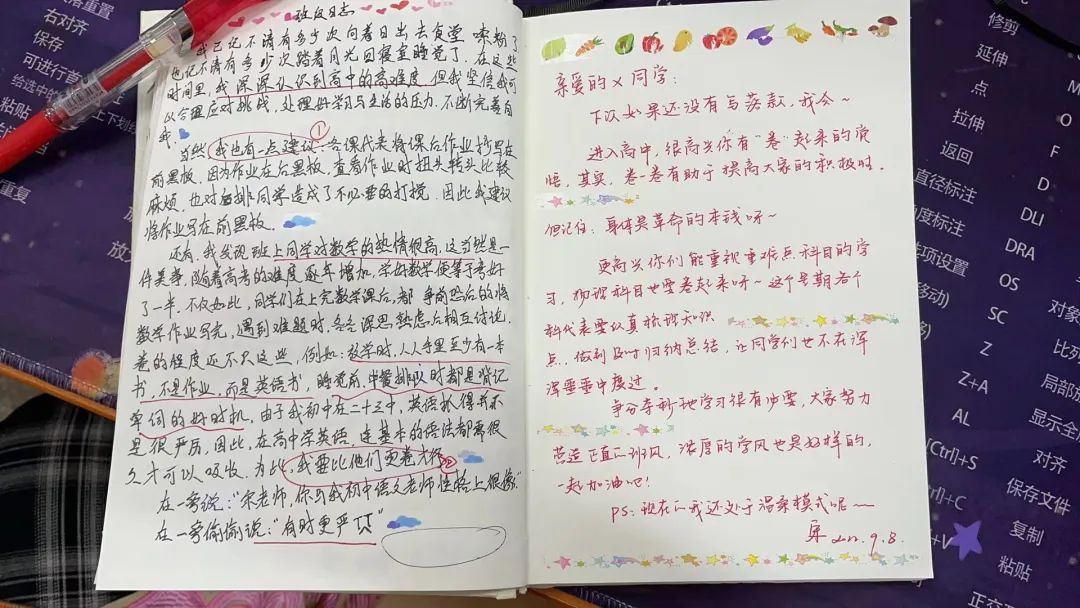 班级日志
我已记不清有多少次向着日出去食堂嗦粉了
也记不清有多少次踏着月光回寝室睡觉了。在这些
时间里，我深深认识到高中的高难度，但我坚信我可
以合理应对挑战，处理好学习与生活的压力，不断完善自
我。
①
当然，我也有一点建议——各课代表将课后作业抄写在
前黑板，因为作业在后黑板，查看作业时扭头转头比较
麻烦，也对后排同学造成了不必要的打搅，因此我建议
将作业写在前黑板。
还有，我发现班上同学对数学的热情很高，这当然是一
件美事，随着高考的难度逐年增加，学好数学便等于考好
了一半，不仅如此，同学们在上完数学课后，都争前恐后的将
数学作业写完，遇到难题时，冬冬深思熟虑后相互讨论，
卷的程度还不只这些，例如：放学时，人人手里至少有一本
书，不是作业，而是英语书，睡觉前，中餐排队时都是背记
单词的好时机，由于我初中在二十三中，英语抓得并不
是很严厉，因此，在高中学英语，连基本的语法都需很
久才可以吸收，为此，我要比他们更卷才行②
在一旁说："宋老师，你与我初中语文老师性格上很像"
在一旁偷偷说："有时更严厉"
亲爱的X同学：
下次如果还没有写落款，我会~
进入高中，很高兴你有"卷"起来的觉
悟，其实，卷一卷有助于提高大家的积极性。
但记住：身体是革命的本钱呀~
更高兴你们能重视重难点科目的学
习，物理科目也要卷起来呀~这个星期各个
科代表要认真梳理知识
点，做到及时归纳总结，让同学们也不在浑
浑噩噩中度过。
争分夺秒地学习很有必要，大家努力
营造正直的班风，浓厚的学风也是好样的，
一起加油吧！
PS：现在的我还处于温柔模式呢~~
2022.9.8.
右对齐
保存
粘贴
重复
修剪
延伸
点
拉伸
返回
直径标注
M
O
F
D
DLI
DRA
OS
SC
Z
Z+A
AL
[Ctrl]+S
+C
+V
对齐
保存文件
复制
粘贴